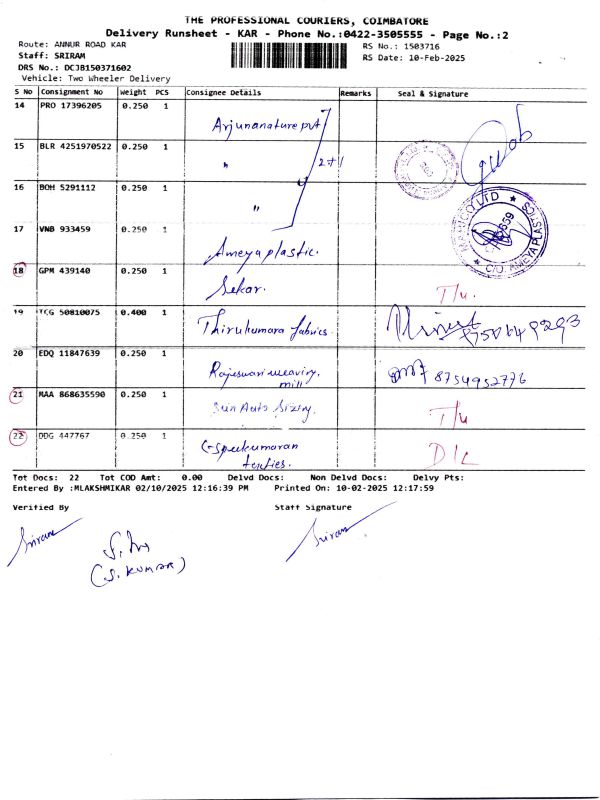 THE PROFESSIONAL COURIERS, COIMBATORE
Delivery Runsheet - KAR - Phone No.:0422-3505555 - Page No.:2
Route: ANNUR ROAD KAR
Staff: SRIRAM
DRS No.: DCJB150371602
Vehicle: Two Wheeler Delivery
RS No.: 1503716
RS Date: 10-Feb-2025
S No Consignment No Weight PCS Consignee Details Remarks Seal & Signature
14 PRO 17396205 0.250 1 Arjunanature pvt
15 BLR 4251970522 0.250 1 "
16 BOH 5291112 0.250 1 "
17 VNB 933459 0.250 1 Ameya plastic.
C/O. AMEYA PLASTICS
18 GPM 439140 0.250 1 Sekar. T/u.
19 TCG 50810075 0.400 1 Thirukumara fabrics.
20 EDQ 11847639 0.250 1 Rajeswari weaving. mill 8754952776
21 MAA 868635590 0.250 1 Sun Auto Sizing. T/u
22 DDG 447767 0.250 1 D/L
Tot Docs: 22 Tot COD Amt: 0.00 Delvd Docs: Non Delvd Docs: Delvy Pts:
Entered By :MLAKSHMIKAR 02/10/2025 12:16:39 PM Printed On: 10-02-2025 12:17:59
Verified By Staff Signature
Sriram Sriram
(S. KUMAR)